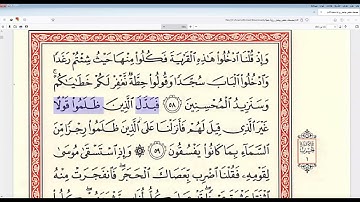 وَإِذْ قُلْنَا ادْخُلُوا هَٰذِهِ الْقَرْيَةَ فَكُلُوا مِنْهَا حَيْثُ شِئْتُمْ رَغَدًا
وَادْخُلُوا الْبَابَ سُجَّدًا وَقُولُوا حِطَّةٌ نَّغْفِرْ لَكُمْ خَطَايَاكُمْ ۚ
وَسَنَزِيدُ الْمُحْسِنِينَ ٥٨ فَبَدَّلَ الَّذِينَ ظَلَمُوا قَوْلًا
غَيْرَ الَّذِي قِيلَ لَهُمْ فَأَنزَلْنَا عَلَى الَّذِينَ ظَلَمُوا رِجْزًا مِّنَ
السَّمَاءِ بِمَا كَانُوا يَفْسُقُونَ ٥٩ ۞ وَإِذِ اسْتَسْقَىٰ مُوسَىٰ
لِقَوْمِهِ فَقُلْنَا اضْرِب بِّعَصَاكَ الْحَجَرَ ۖ فَانفَجَرَتْ